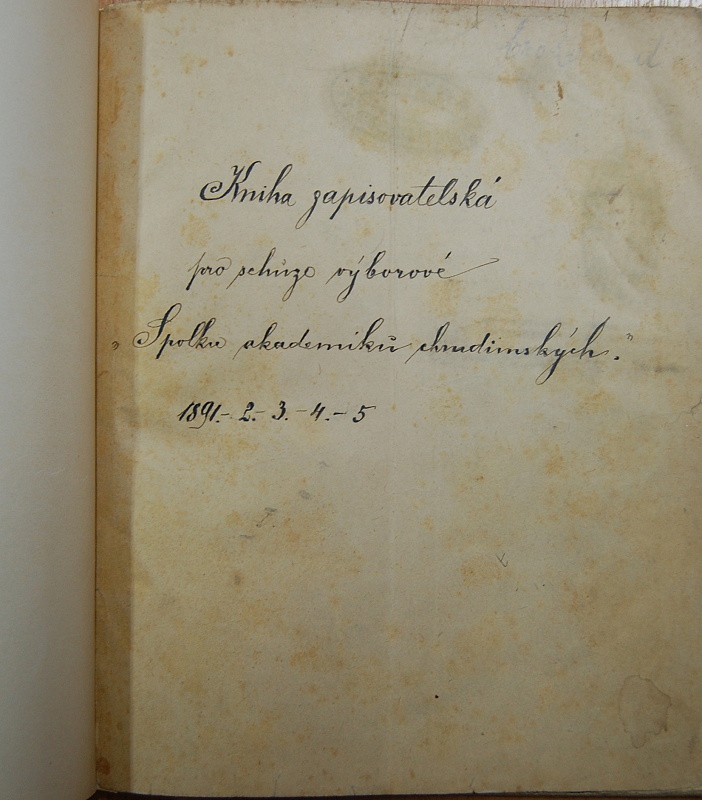 Kniha zapisovatelská
pro schůze výborové
„Spolku akademiků chrudimských."
1891.- 2.- 3.- 4.- 5